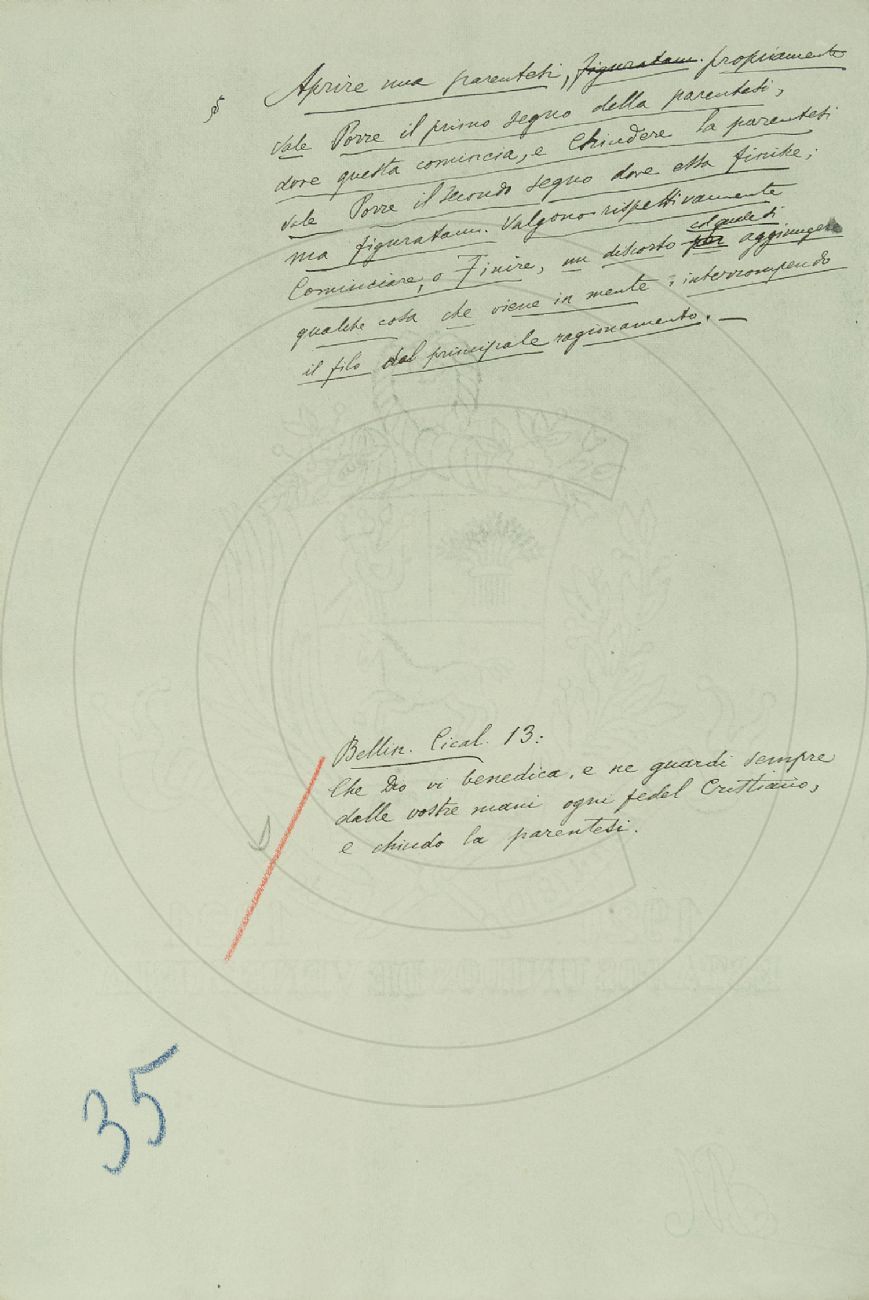 § Aprire una parentesi, figuratam. propriamente
vale Porre il primo segno della parentesi,
dove questa comincia, e Chiudere la parentesi
vale Porre il secondo segno dove essa finisce;
ma figuratam. Valgono rispettivamente
Cominciare, o Finire, un discorso per col quale si aggiungere
qualche cosa che viene in mente, interrompendo
il filo dal principale ragionamento. —
Bellin. Cical. 13:
Che Dio vi benedica, e ne guardi sempre
dalle vostre mani ogni fedel Cristiano,
e chiudo la parentesi.
35